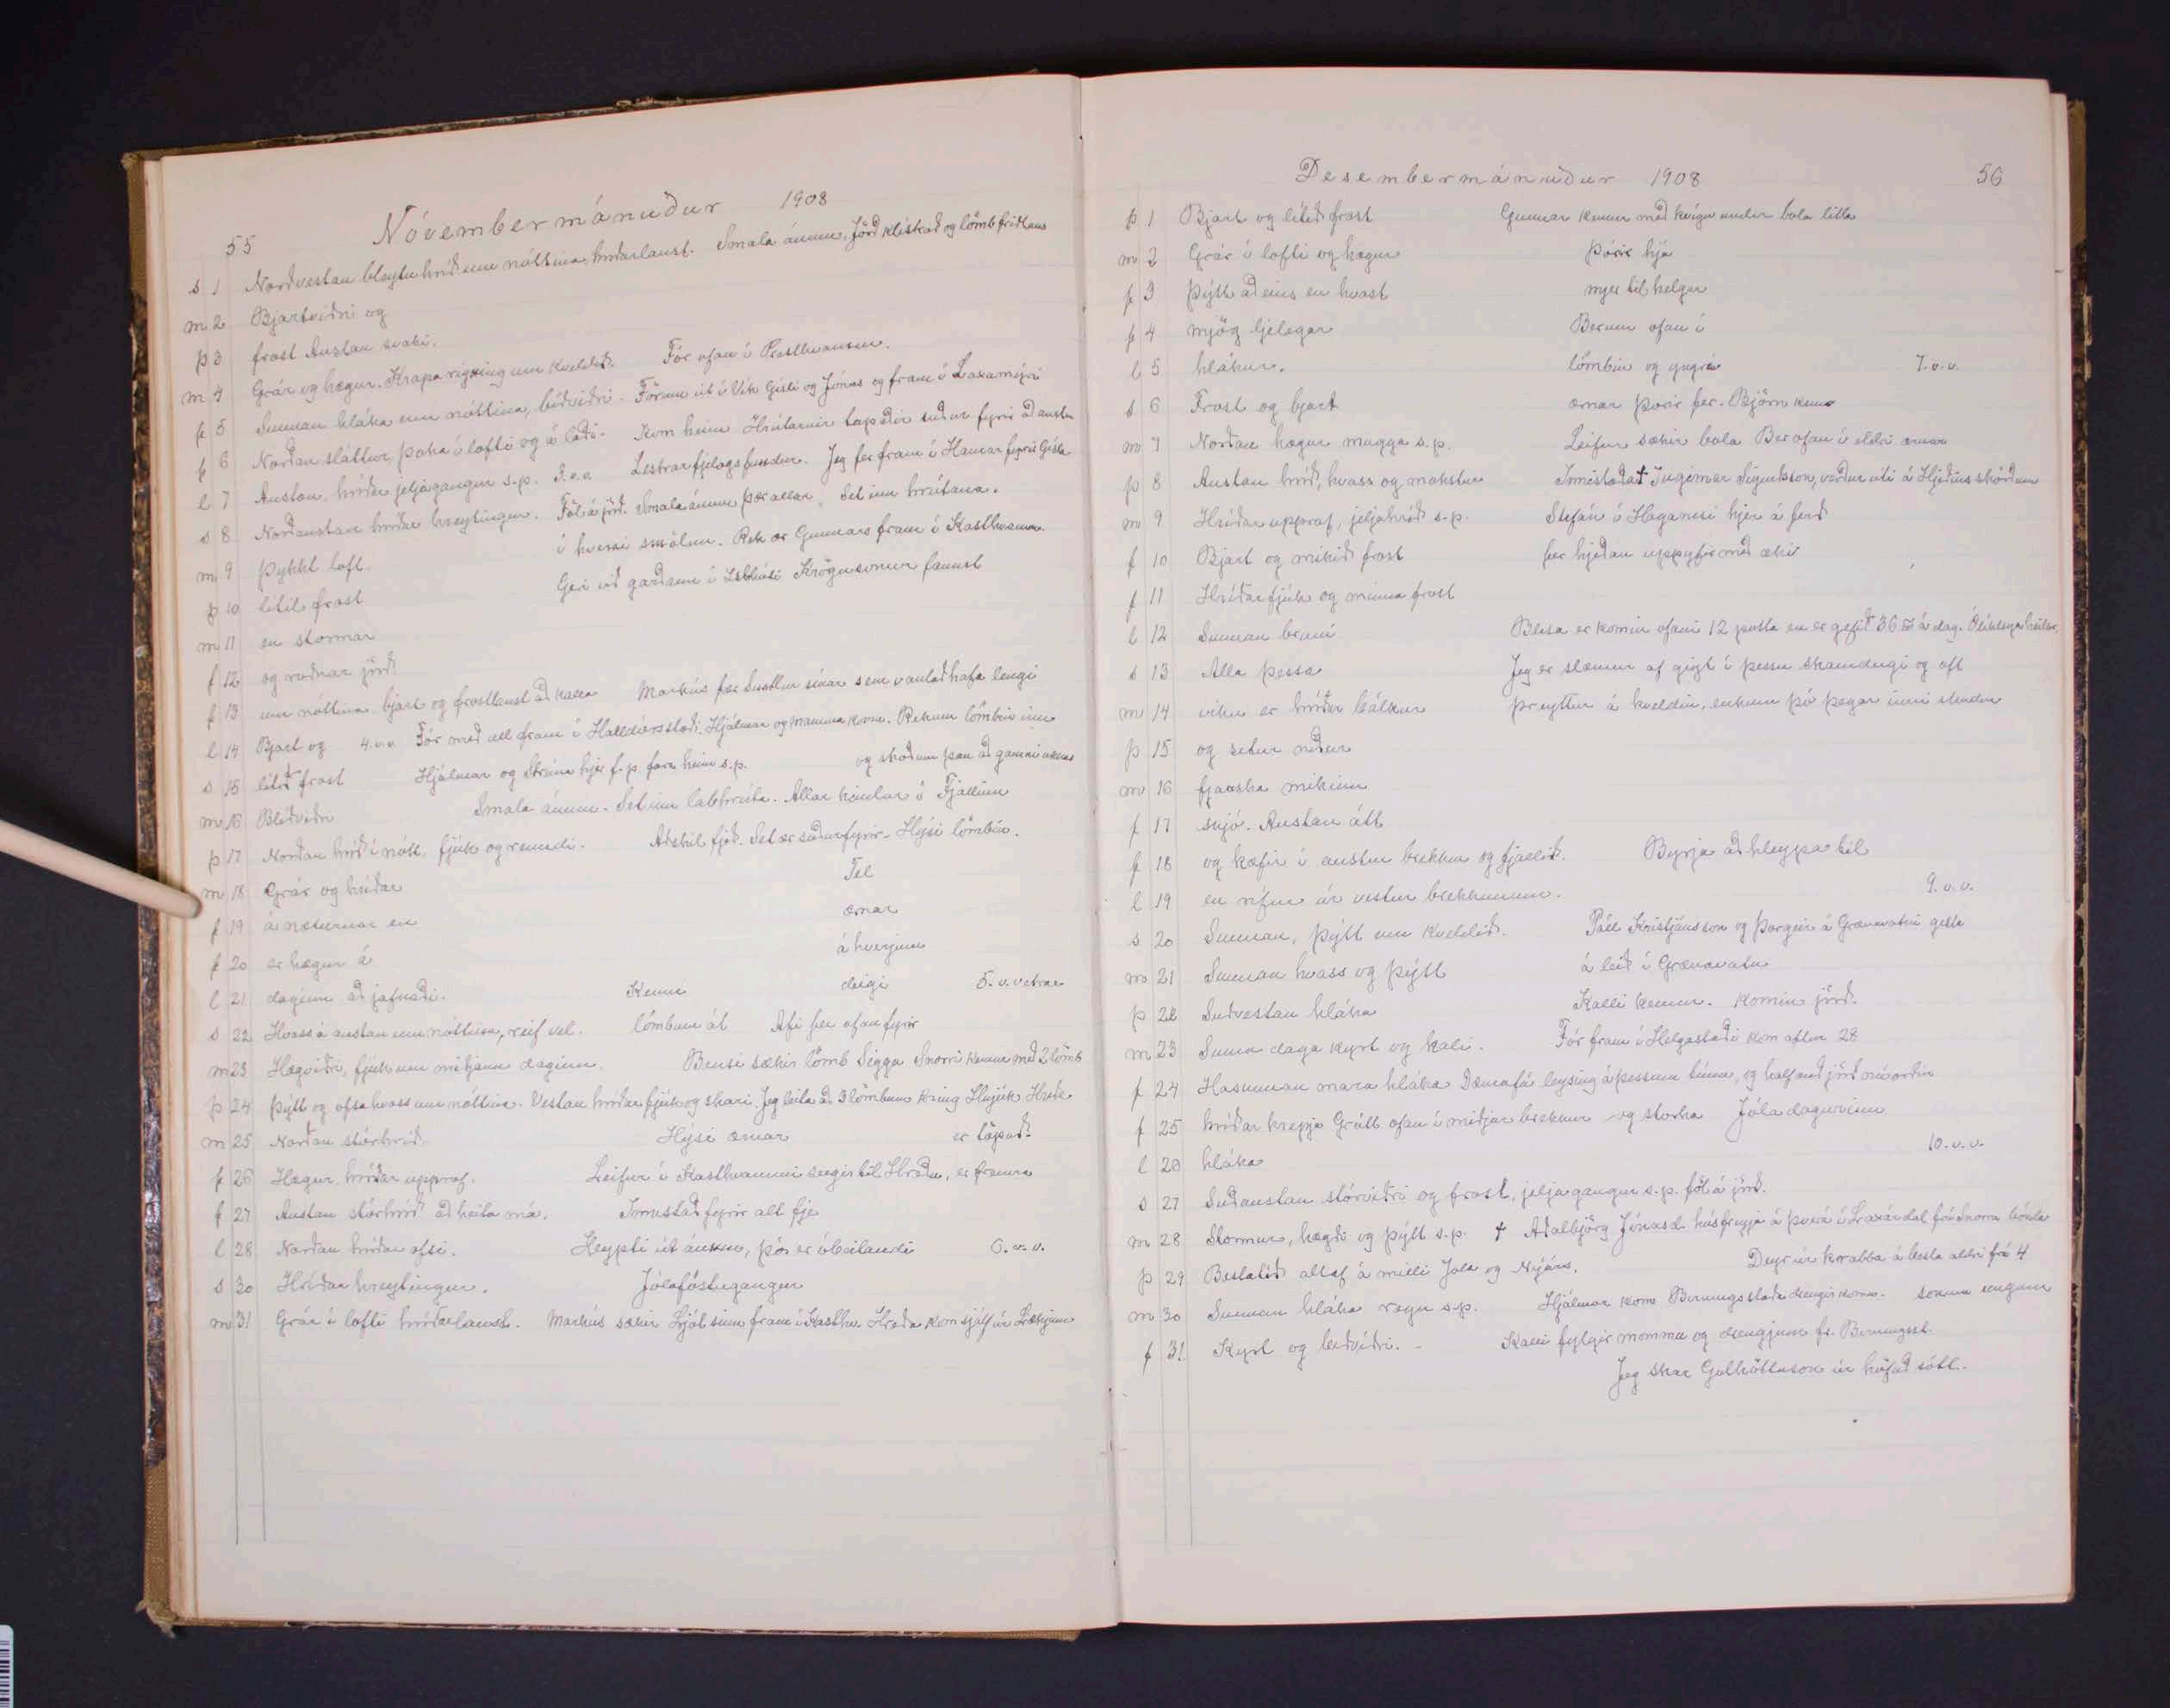 55
Nóvembermánuður 1908
s 1 Norðvestan bleytu hríð um nóttina, hríðarlaust. Smala ánum, Jörð klískað og lömb
m 2 Bjartviðri og
þ 3 frost Austan svali.
m 4 Grár og hægur. Krapa rigning um kveldið. Fór ofan í Kasthvamm.
f 5 Sunnan hláka um nóttina, blíðviðri. Förum út í Vík Gísli og Jónas og fram í Laxamýri
f 6 Norðan sláttur, þoka í lofti og á láði. Kom heim Hrútarnir tapaðir suður fyrir að austan
l 7 Austan hríðar jeljagangur s.p. 3.v.v. Lestrarfjelagsfundur. Jeg fer fram í Hamar fyrir Gísla
s 8 Norðaustan hríðar hreytingur. Föl á jörð. Smala ánum þær allar. Set inn hrútana.
m 9 þykkt loft í hverri smölun. Rek ær Gunnars fram í Kasthvamm.
þ 10 lítil frost Geri við garðann í Lambhúsi Krögusonur fannst
m 11 en stormar
f 12 og roðnar jörð
f 13 um nóttina bjart og frostlaust að kalla Markús fær Snotlur sínar sem vantað hafa lengi
l 14 Bjart og 4.v.v Fór með ull fram í Halldórsstaði. Hjálmar og mamma kom. Rekum lömbin inn
s 15 lítið frost Hjálmar og Stína hjer f.p. fara heim s.p. og skoðum þau að gamni okkar
m 16 Blíðviðri Smala ánum. Set inn lambhrúta. Allar kindur í Fjallinu
þ 17 Norðan hríð í nótt, fjúk og rennsli. Aðskil fjeð. Set ær suður fyrir. Hýsi lömbin.
m 18 Grár og hríðar Tel
f 19 á næturnar en ærnar
f 20 er hægur á á hverjum
l 21 daginn að jafnaði. Kenni degi 5.v. vetrar
s 22 Hvass á austan um nóttina, reif vel. lömbum át Afi fer ofan fyrir
m 23 Hægviðri, fjúk um miðjann daginn. Bensi sækir lömb Sigga Snorri kemur með 2 lömb
þ 24 þýtt og ofsa hvass um nóttina. Vestan hríðar fjúk og skari. Jeg leita að 3 lömbum kring Hnjúk Hreða
m 25 Norðan stórhríð. Hýsi ærnar er töpuð.
f 26 Hægur, hríðar uppraf. Leifur í Kasthvammi segir til Hreðu, er fremra
f 27 Austan stórhríð að heita má. Innistað fyrir alt fje
l 28 Norðan hríðar ofsi. Hleypti út ánum, þó er óbeitandi 6.v.v.
s 30 Hríðar hreytingur. Jólaföstugangur
m 31 Grár í lofti hríðarlaust. Markús sækir Ljót sinn fram í Kasthv. Hreða kom sjálf úr Lækjum
56
Desembermánuður 1908
þ 1 Bjart og lítið frost Gunnar kemur með kvígu undir bola litla
m 2 Grár í lofti og hægur Þórir hjá
f 3 þýtt aðeins en hvast mjer til helgar
f 4 mjög ljelegar Berum ofan í
l 5 hlákur. lömbin og yngri 7.v.v.
s 6 Frost og bjart ærnar Þórir fer. Björn kemur
m 7 Norðan hægur mugga s.p. Leifur sækir bola Ber ofan í eldri ærnar
þ 8 Austan hríð, hvass og mokstur Innistaða † Ingimar Sigurðsson, verður úti á Hjeðinsskörðum
m 9 Hríðar uppraf, jeljahríð s.p. Stefán í Haganesi hjer á ferð
f 10 Bjart og mikið frost fer hjeðan uppyfir með æki
f 11 Hríðarfjúk og minna frost
l 12 Sunnan bruni Blesa er komin ofaní 12 potta en er gefið 36 á dag.
s 13 Alla þessa Jeg er slæmur af gigt í þessu skammdegi og oft
m 14 viku er hríðar bálkur þreyttur á kveldin, enkum þó þegar inni stendur
þ 15 og setur niður
m 16 fjarska mikinn
f 17 snjó. Austan átt
f 18 og kæfir í austur brekkur og fjallið. Byrja að hleypa til
l 19 en rífur úr vestur brekkunum. 9.v.v.
s 20 Sunnan, þýtt um kveldið. Páll Kristjánsson og Þorgeir á Grænavatni gista
m 21 Sunnan hvass og þýtt á leið í Grænavatn
þ 22 Suðvestan hláka Kalli kemur. Komin jörð.
m 23 Suma daga kyrt og kali. Fór fram í Helgastaði kom aftur 28
f 24 Hásunnan mara hláka Dæmafá leysing á þessum tíma, og hálfauð jörð núorðin
f 25 hríðar krepja Grátt ofan í miðjar brekkur og storka Jóla dagurinn
l 26 hláka 10.v.v.
s 27 Suðaustan stórviðri og frost, jeljagangur s.p. föl á jörð.
m 28 Stormur, hægði og þýtt s.p. † Aðalbjörg Jónasd. húsfreyja á Þverá í Laxárdal frá Snorra bónda
þ 29 Bestatíð altaf á milli Jóla og Nýárs. Deyr úr krabba á besta aldri frá 4
m 30 Sunnan hláka regn s.p. Hjálmar kom Birningsstaða drengir koma. sonum ungum
f 31 Kyrt og beðviðri. Kalli fylgir mömmu og drengjum fr. Birningsst.
Jeg skar Gulhöttuson úr höfuð sótt.